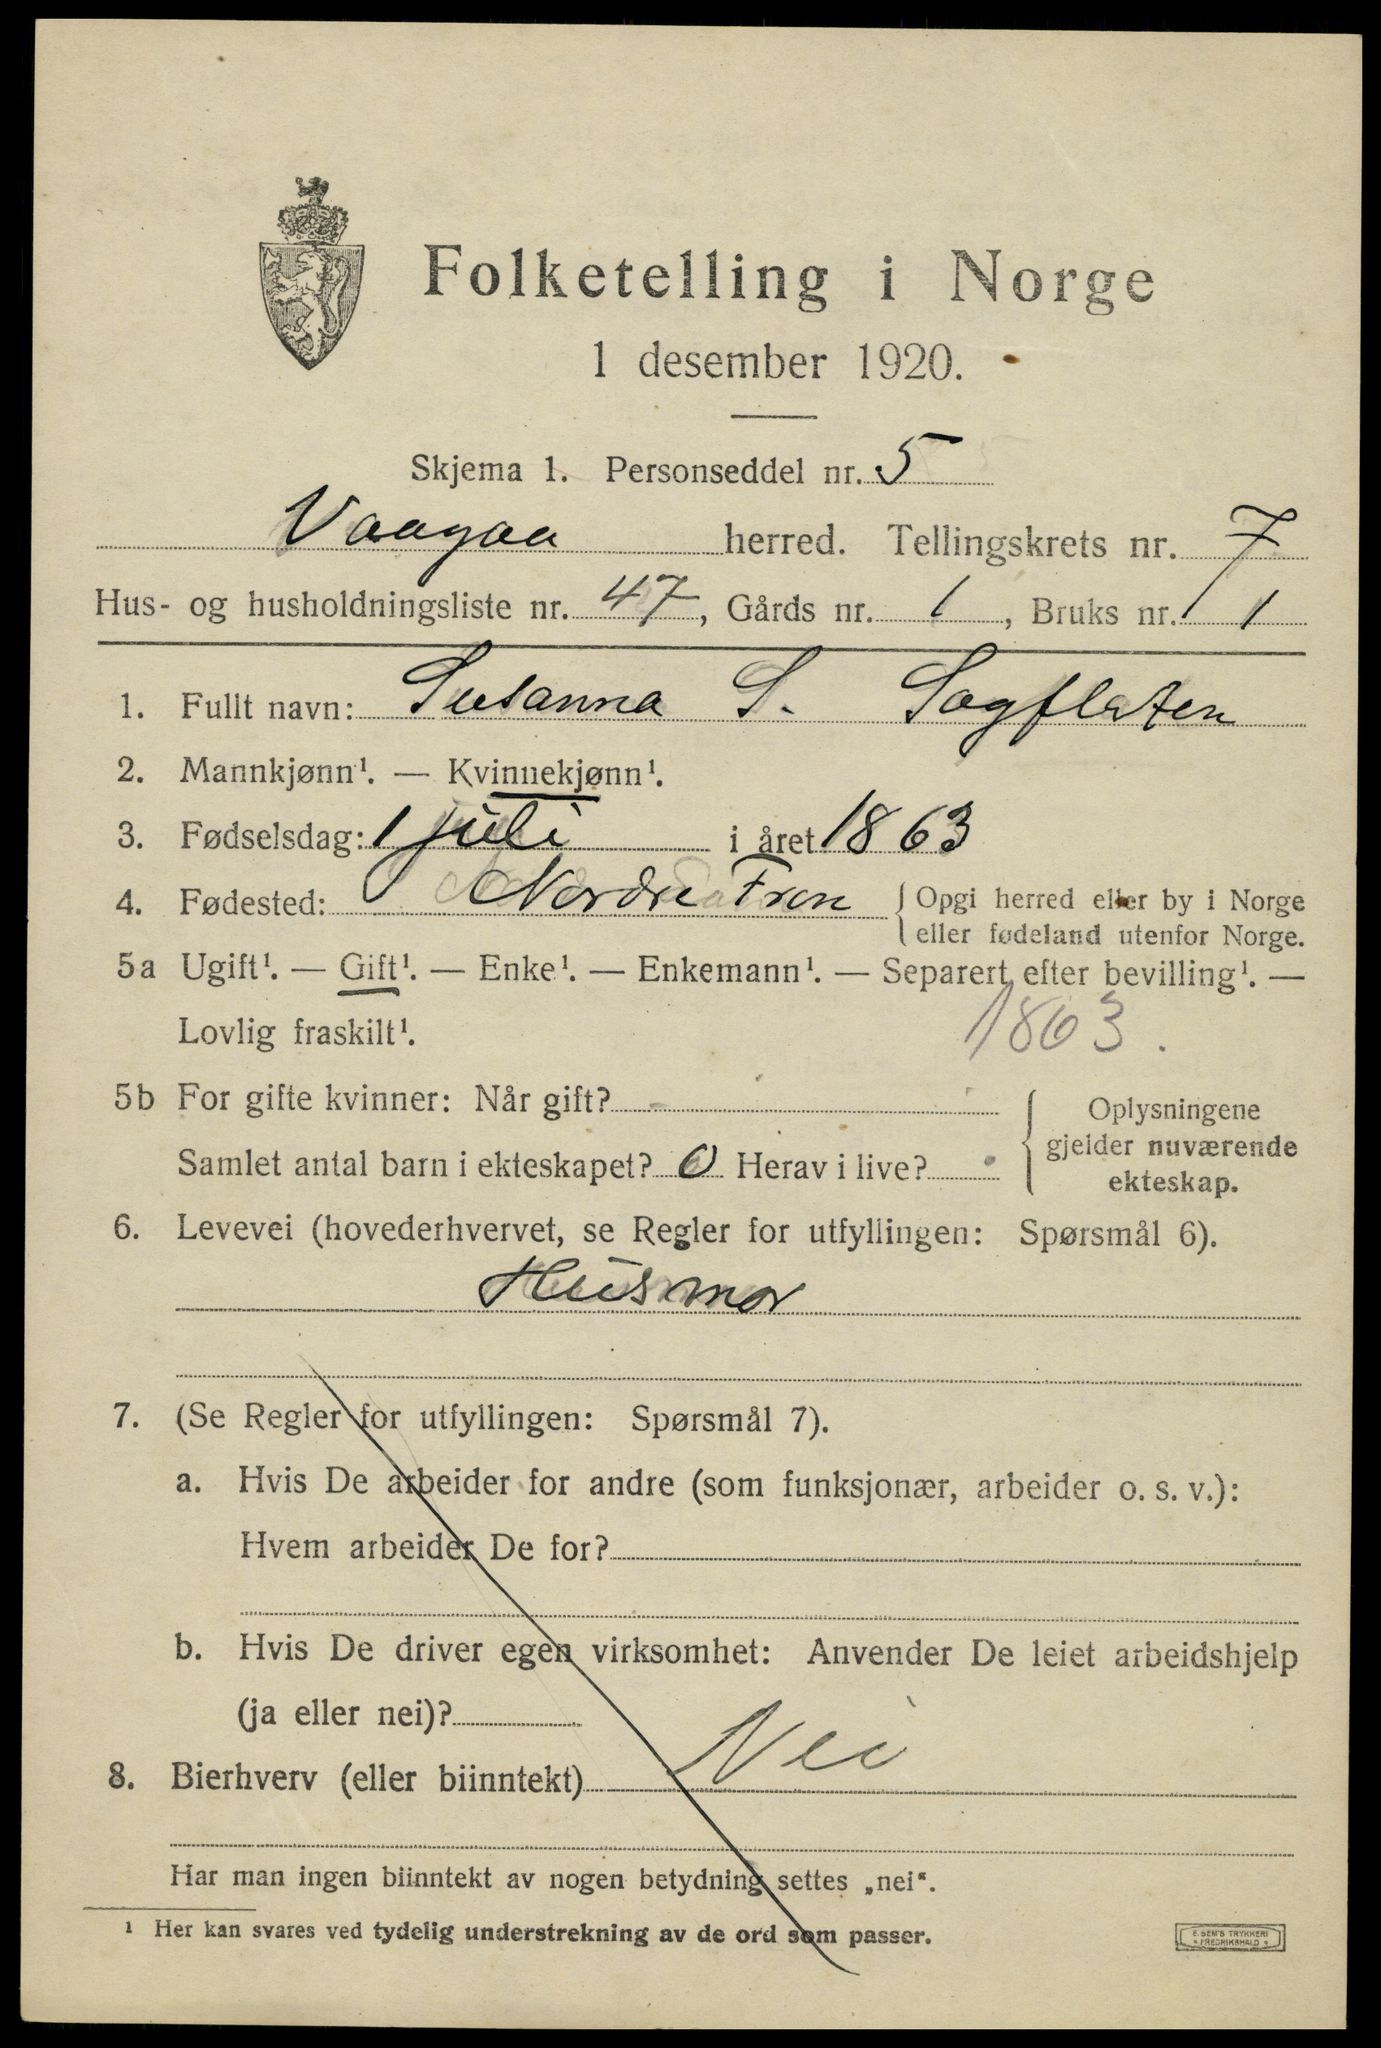 Folketelling i Norge
1 desember 1920.
Skjema 1. Personseddel nr. 5
Vaagaa herred. Tellingskrets nr. 7
Hus- og husholdningsliste nr. 47, Gårds nr. 1, Bruks nr. 1
1. Fullt navn: Susanna S. Sagflaten
2. Mannkjønn¹. — Kvinnekjønn¹.
3. Fødselsdag: 1 juli i året 1863
4. Fødested: Nordre Fron { Opgi herred eller by i Norge
eller fødeland utenfor Norge.
5a Ugift¹. — Gift¹. — Enke¹. — Enkemann¹. — Separert efter bevilling¹. —
Lovlig fraskilt¹. 1863.
5b For gifte kvinner: Når gift? -
Samlet antal barn i ekteskapet? 0 Herav i live?
Oplysningene
gjelder nuværende
ekteskap.
6. Levevei (hovederhvervet, se Regler for utfyllingen: Spørsmål 6).
Husmor
7. (Se Regler for utfyllingen: Spørsmål 7).
a. Hvis De arbeider for andre (som funksjonær, arbeider o. s. v.):
Hvem arbeider De for?
b. Hvis De driver egen virksomhet: Anvender De leiet arbeidshjelp
(ja eller nei)?
8. Bierhverv (eller biinntekt) Nei
Har man ingen biinntekt av nogen betydning settes „nei“.
¹ Her kan svares ved tydelig understrekning av de ord som passer.
E. SEM'S TRYKKERI
FREDRIKSHALD